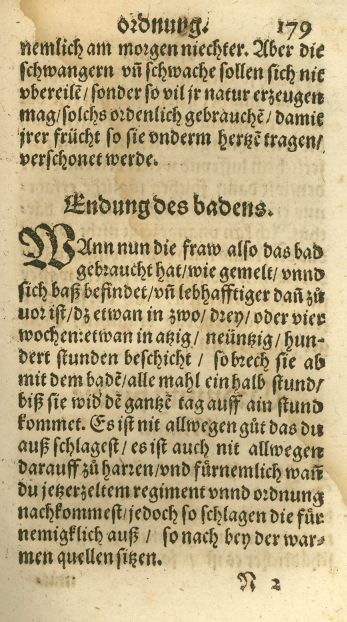 ordnung. 179
nemlich am morgen niechter. Aber die
schwangern vñ schwache sollen sich nit
vbereilẽ/ sonder so vil jr natur erzeugen
mag/ solchs ordenlich gebrauchẽ/ damit
jrer frücht so sie vnderm hertzẽ tragen/
verschonet werde.
Endung des badens.
WAnn nun die fraw also das bad
gebraucht hat/ wie gemelt/ vnnd
sich baß befindet/ vñ lebhafftiger dañ zů
vor ist/ dz etwan in zwo/ drey/ oder vier
wochen: etwan in atzig/ neüntzig/ hun-
dert stunden beschicht / so brech sie ab
mit dem badẽ/ alle mahl ein halb stund/
biß sie wid' dẽ gantzẽ tag auff ain stund
kommet. Es ist nit allwegen gůt das du
auß schlagest/ es ist auch nit allwegen
darauff zů harren/ vnd fürnemlich wañ
du jetzerzeltem regiment vnnd ordnung
nachkommest/ jedoch so schlagen die für
nemigklich auß / so nach bey der war-
men quellen sitzen.
N 2